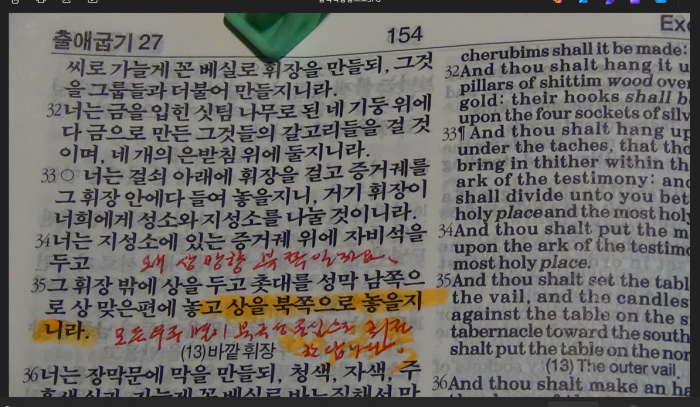 출애굽기 27
154
씨로 가늘게 꼰 베실로 휘장을 만들되, 그것
을 그룹들과 더불어 만들지니라.
32너는 금을 입힌 싯팀 나무로 된 네 기둥 위에
다 금으로 만든 그것들의 갈고리들을 걸 것
이며, 네 개의 은받침 위에 둘지니라.
33○ 너는 걸쇠 아래에 휘장을 걸고 증거궤를
그 휘장 안에다 들여 놓을지니, 거기 휘장이
너희에게 성소와 지성소를 나눌 것이니라.
34너는 지성소에 있는 증거궤 위에 자비석을
두고
35그 휘장 밖에 상을 두고 촛대를 성막 남쪽으
로 상 맞은편에 놓고 상을 북쪽으로 놓을지
니라.
(13)바깥 휘장
36너는 장막문에 막을 만들되, 청색, 자색, 주
Exo
cherubims shall it be made:
32And thou shalt hang it u
pillars of shittim wood over
gold: their hooks shall b
upon the four sockets of silv
33¶ And thou shalt hang up
under the taches, that tho
bring in thither within th
ark of the testimony: and
shall divide unto you bet
holy place and the most hol
34And thou shalt put the m
upon the ark of the testimo
most holy place.
35And thou shalt set the tabl
the vail, and the candles
against the table on the s
tabernacle toward the south
shalt put the table on the nor
(13) The outer vail.
36And thou shalt make an ha